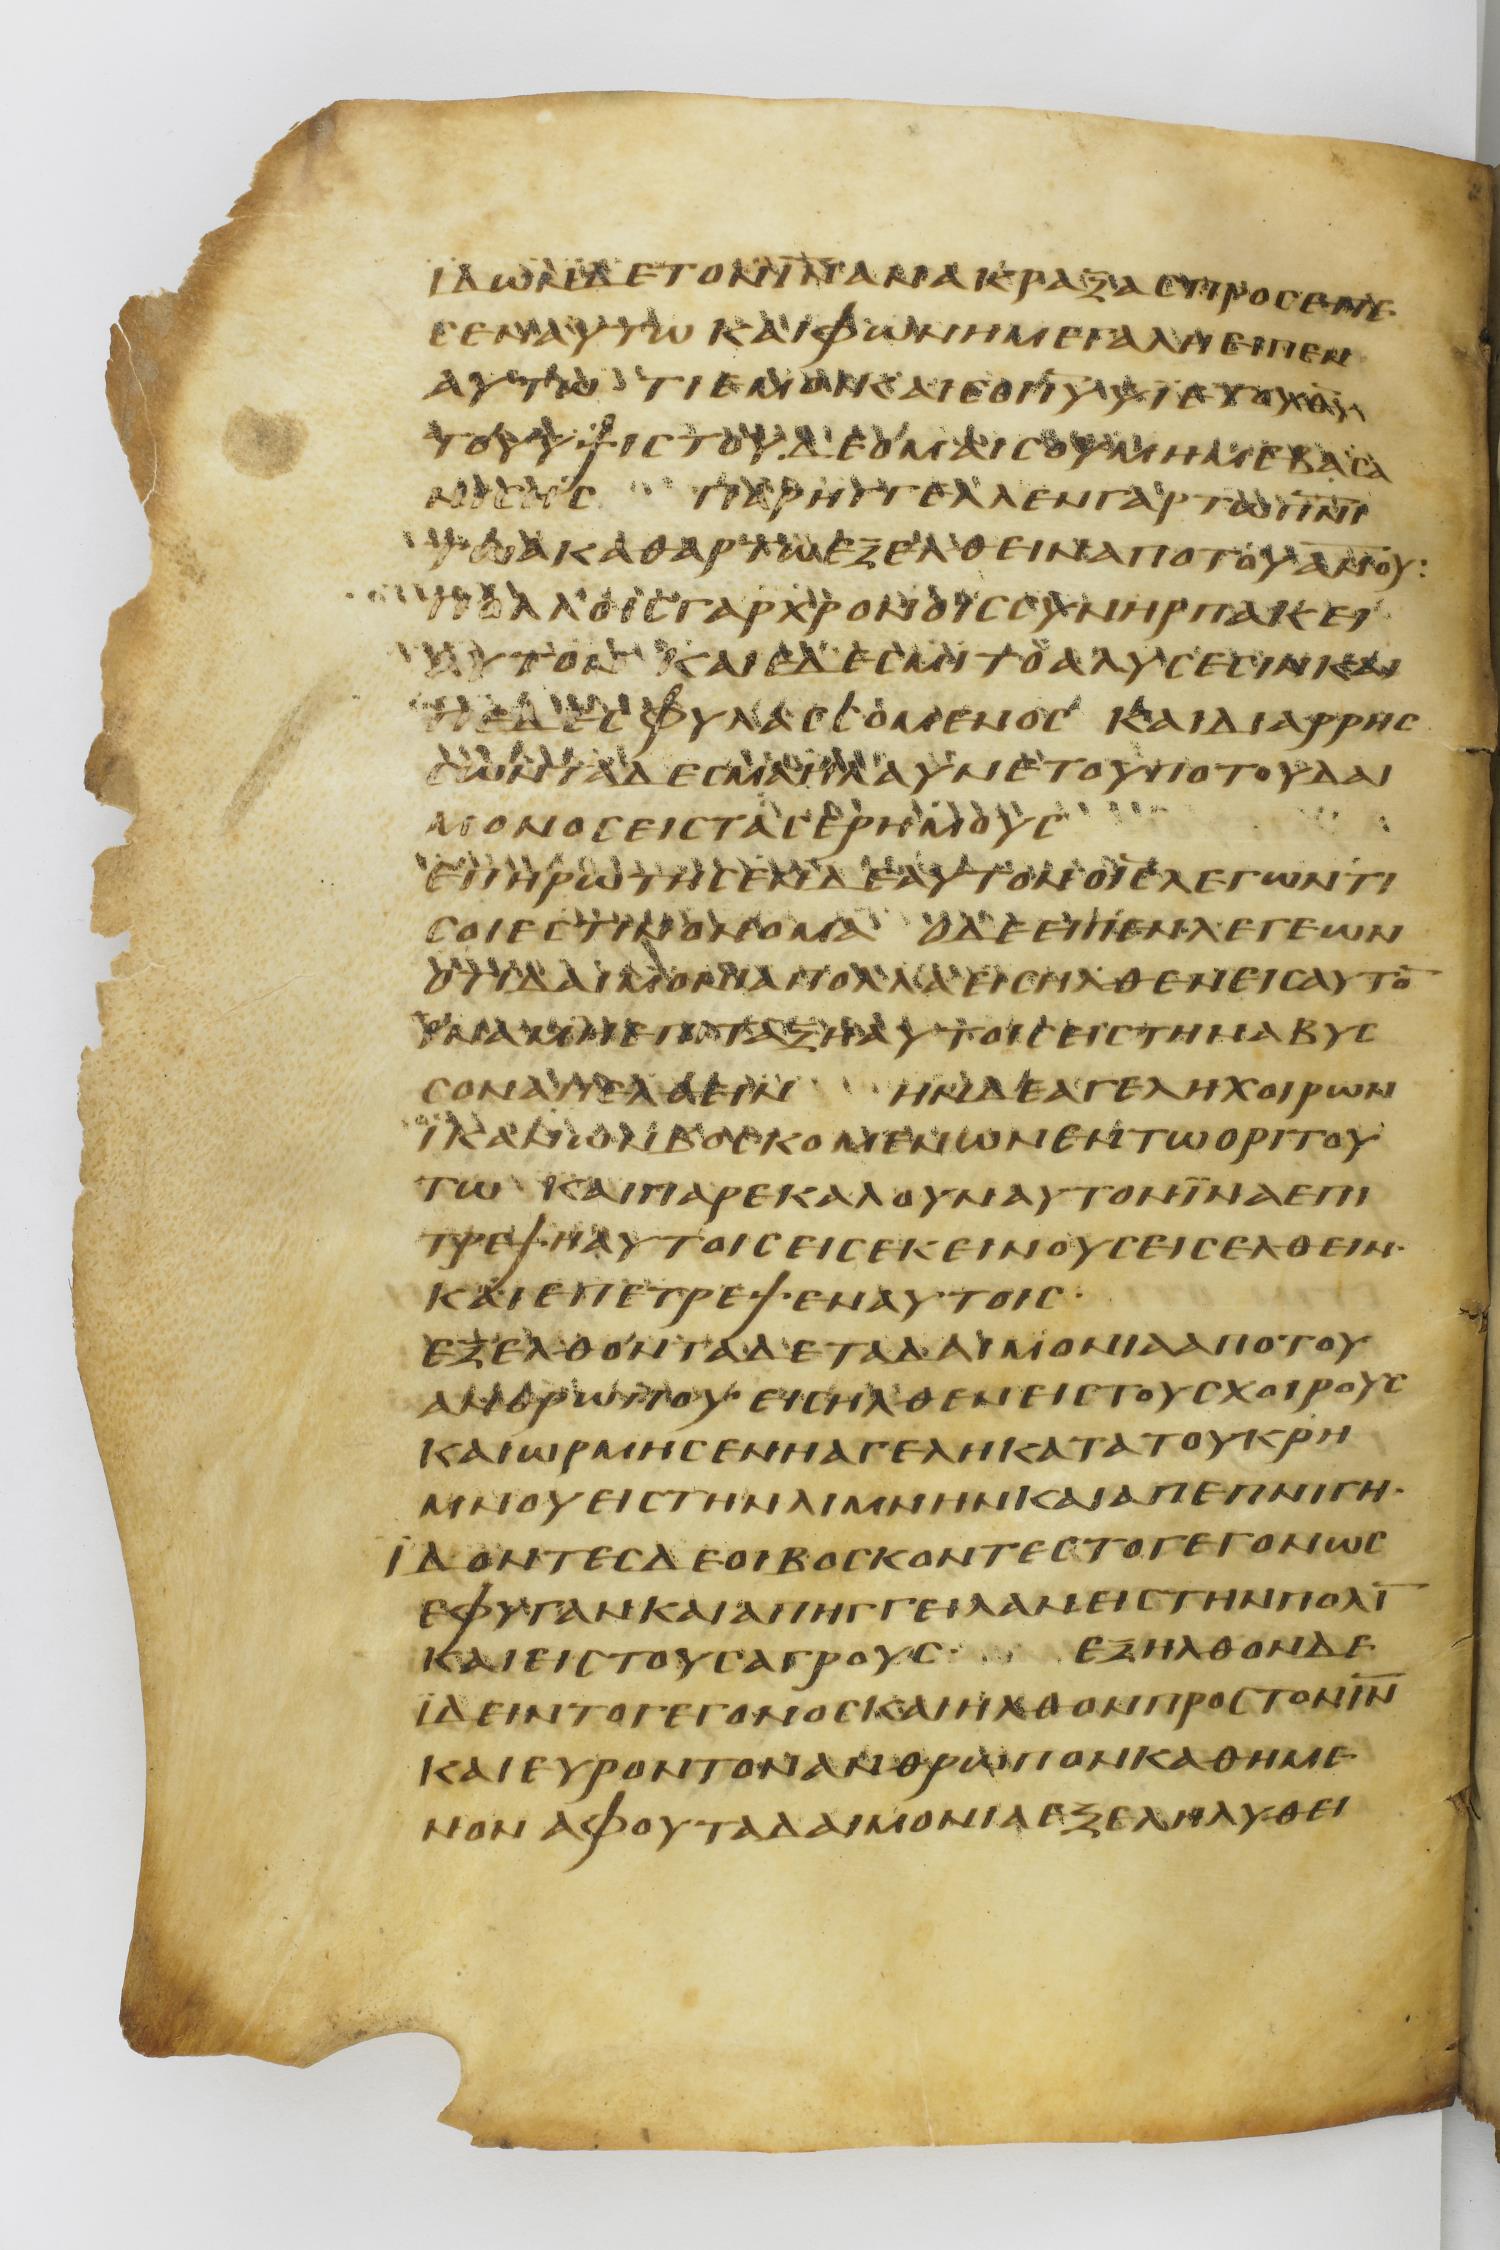 ΙΔΩΝΔΕΤΟΝΙ̅Ν̅ΑΝΑΚΡΑΞΑΣΠΡΟΣΕΠΕ
ΣΕΝΑΥΤΩ ΚΑΙΦΩΝΗΜΕΓΑΛΗΕΙΠΕΝ
ΑΥΤΩ ΤΙΕΜΟΙΚΑΙΣΟΙΙ̅Υ̅ΥΙΕΤΟΥΘ̅Υ̅
ΤΟΥΥΨΙΣΤΟΥ ΔΕΟΜΑΙΣΟΥΜΗΜΕΒΑΣΑ
ΝΙΣΗΣ ΠΑΡΗΓΓΕΛΛΕΝΓΑΡΤΩΠ̅Ν̅Ι̅
ΤΩΑΚΑΘΑΡΤΩΕΞΕΛΘΕΙΝΑΠΟΤΟΥΑ̅Ν̅Ο̅Υ̅:
ΠΟΛΛΟΙΣΓΑΡΧΡΟΝΟΙΣΣΥΝΗΡΠΑΚΕΙ
ΑΥΤΟΝ ΚΑΙΕΔΕΣΜΙΤΟΑΛΥΣΕΣΙΝΚΑΙ
ΠΕΔΕΣΦΥΛΑΣΣΟΜΕΝΟΣ ΚΑΙΔΙΑΡΡΗΣ
ΣΩΝΤΑΔΕΣΜΑΗΛΑΥΝΕΤΟΥΠΟΤΟΥΔΑΙ
ΜΟΝΟΣΕΙΣΤΑΣΕΡΗΜΟΥΣ
ΕΠΗΡΩΤΗΣΕΝΔΕΑΥΤΟΝΟΙ̅Σ̅ΛΕΓΩΝΤΙ
ΣΟΙΕΣΤΙΝΟΝΟΜΑ ΟΔΕΕΙΠΕΝΛΕΓΕΩΝ
ΟΤΙΔΑΙΜΟΝΙΑΠΟΛΛΑΕΙΣΗΛΘΕΝΕΙΣΑΥΤΟ̅
ΙΝΑΜΗΕΠΙΤΑΞΗΑΥΤΟΙΣΕΙΣΤΗΝΑΒΥΣ
ΣΟΝΑΠΕΛΘΕΙΝ ΗΝΔΕΑΓΕΛΗΧΟΙΡΩΝ
ΙΚΑΝΩΝΒΟΣΚΟΜΕΝΩΝΕΝΤΩΟΡΙΤΟΥ
ΤΩ ΚΑΙΠΑΡΕΚΑΛΟΥΝΑΥΤΟΝΪΝΑΕΠΙ
ΤΡΕΨΗΑΥΤΟΙΣΕΙΣΕΚΕΙΝΟΥΣΕΙΣΕΛΘΕΙΝ·
ΚΑΙΕΠΕΤΡΕΨΕΝΑΥΤΟΙΣ·
ΕΞΕΛΘΟΝΤΑΔΕΤΑΔΑΙΜΟΝΙΑΑΠΟΤΟΥ
ΑΝΘΡΩΠΟΥ· ΕΙΣΗΛΘΕΝΕΙΣΤΟΥΣΧΟΙΡΟΥΣ
ΚΑΙΩΡΜΗΣΕΝΗΑΓΕΛΗΚΑΤΑΤΟΥΚΡΗ
ΜΝΟΥΕΙΣΤΗΝΛΙΜΝΗΝΚΑΙΑΠΕΠΝΙΓΗ·
ΪΔΟΝΤΕΣΔΕΟΙΒΟΣΚΟΝΤΕΣΤΟΓΕΓΟΝΩΣ
ΕΦΥΓΑΝΚΑΙΑΠΗΓΓΕΙΛΑΝΕΙΣΤΗΝΠΟΛΙ̅
ΚΑΙΕΙΣΤΟΥΣΑΓΡΟΥΣ· ΕΞΗΛΘΟΝΔΕ
ΪΔΕΙΝΤΟΓΕΓΟΝΟΣΚΑΙΗΛΘΟΝΠΡΟΣΤΟΝΙ̅Ν̅
ΚΑΙΕΥΡΟΝΤΟΝΑΝΘΡΩΠΟΝΚΑΘΗΜΕ
ΝΟΝΑΦΟΥΤΑΔΑΙΜΟΝΙΑΕΞΕΛΗΛΥΘΕΙ